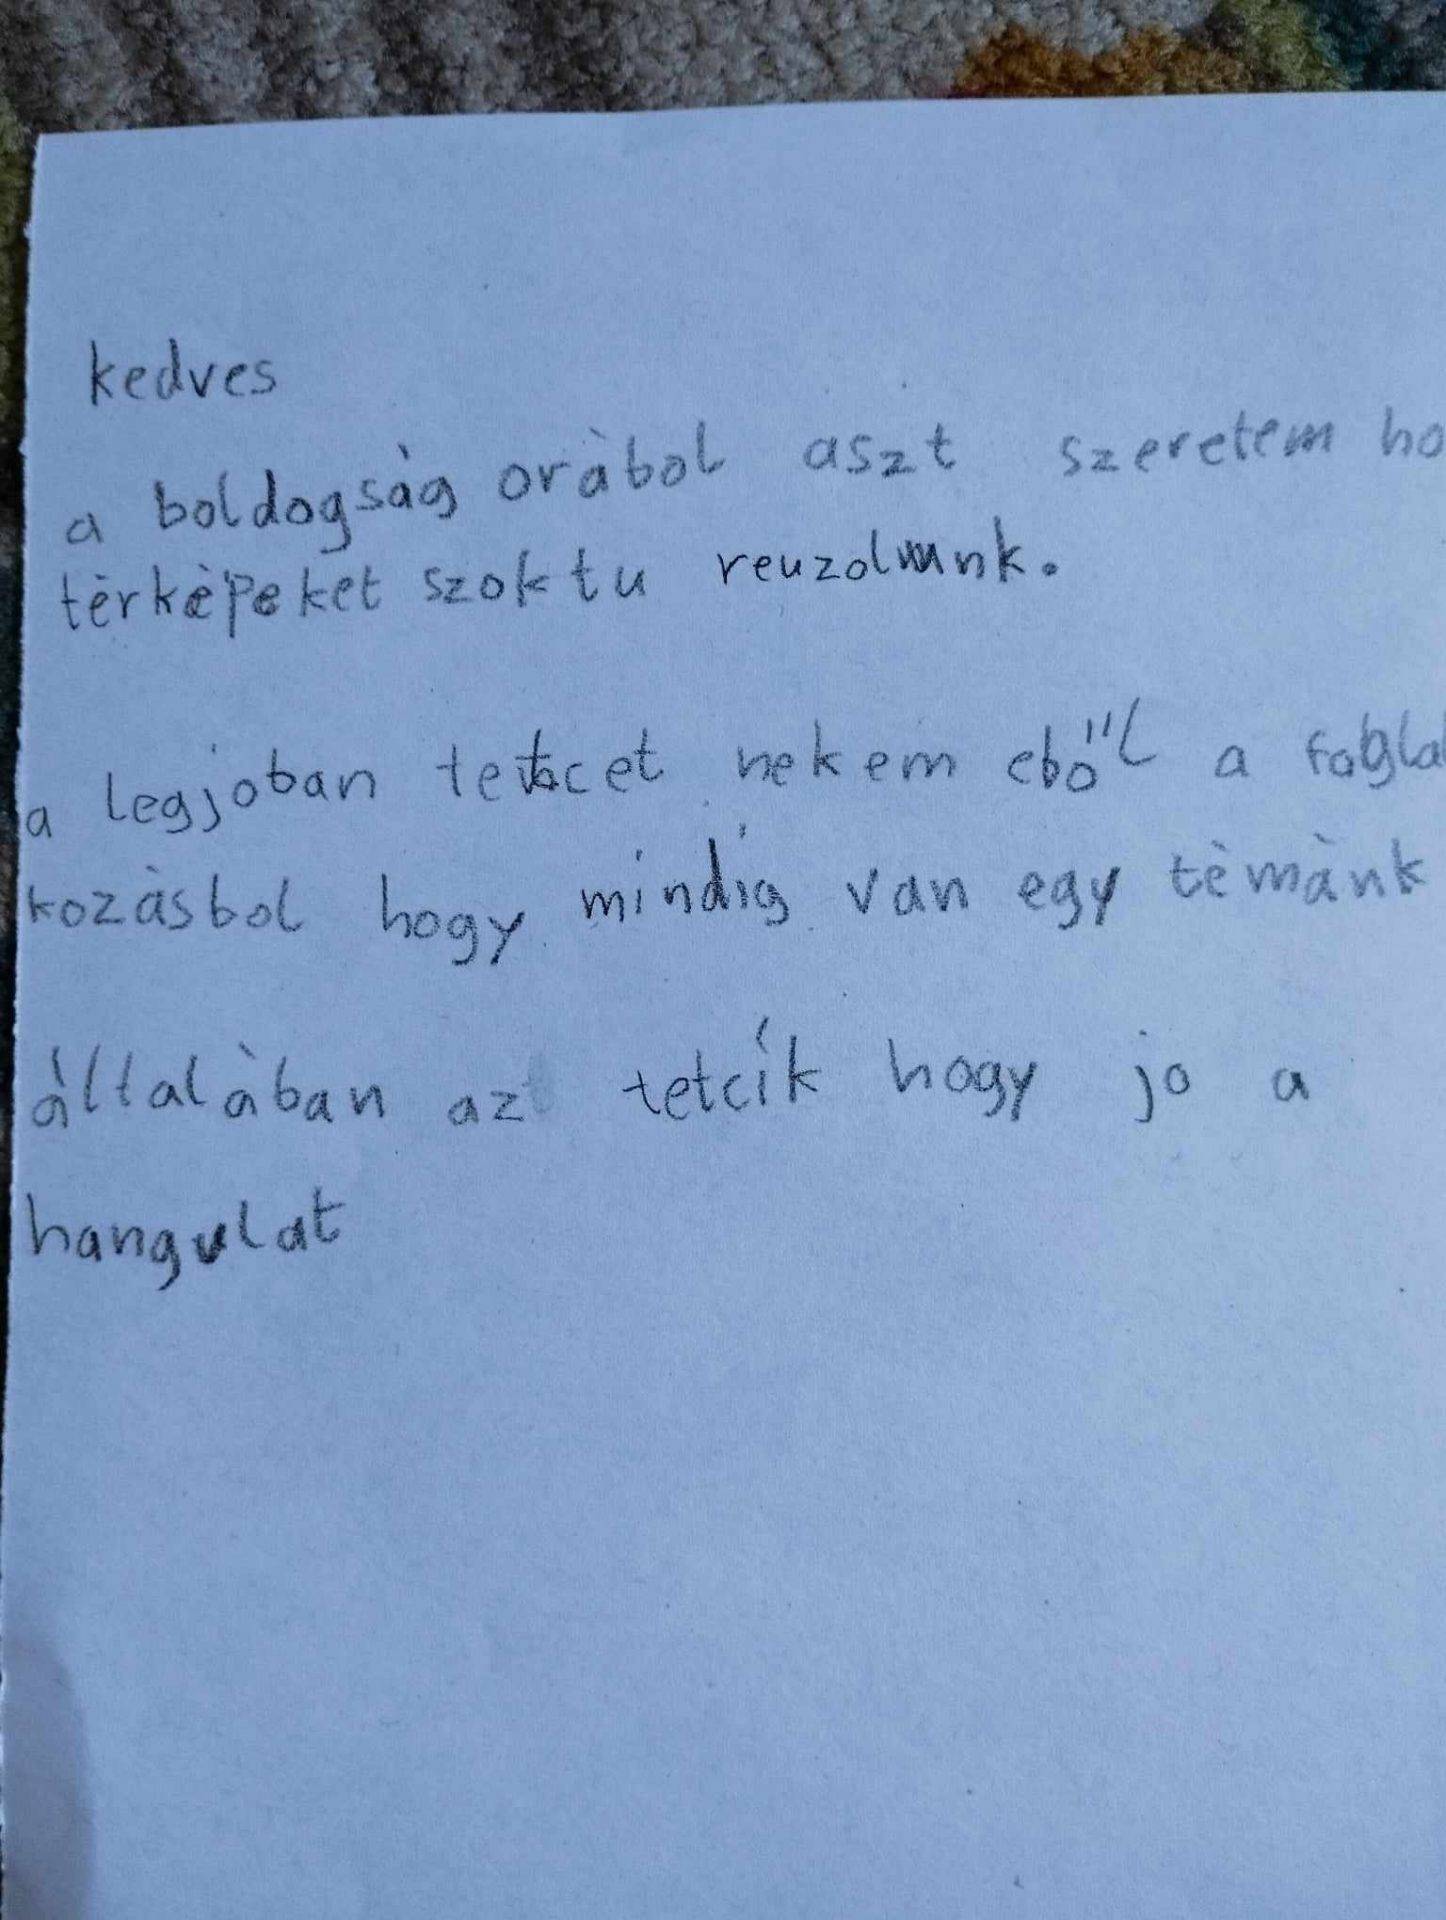 kedves
a boldogság orábol aszt szeretem ho
térképeket szoktu reuzolunk.
a legjoban tetcet nekem eből a fogla
kozásbol hogy mindig van egy témánk
általában az tetcík hogy jo a
hangulat